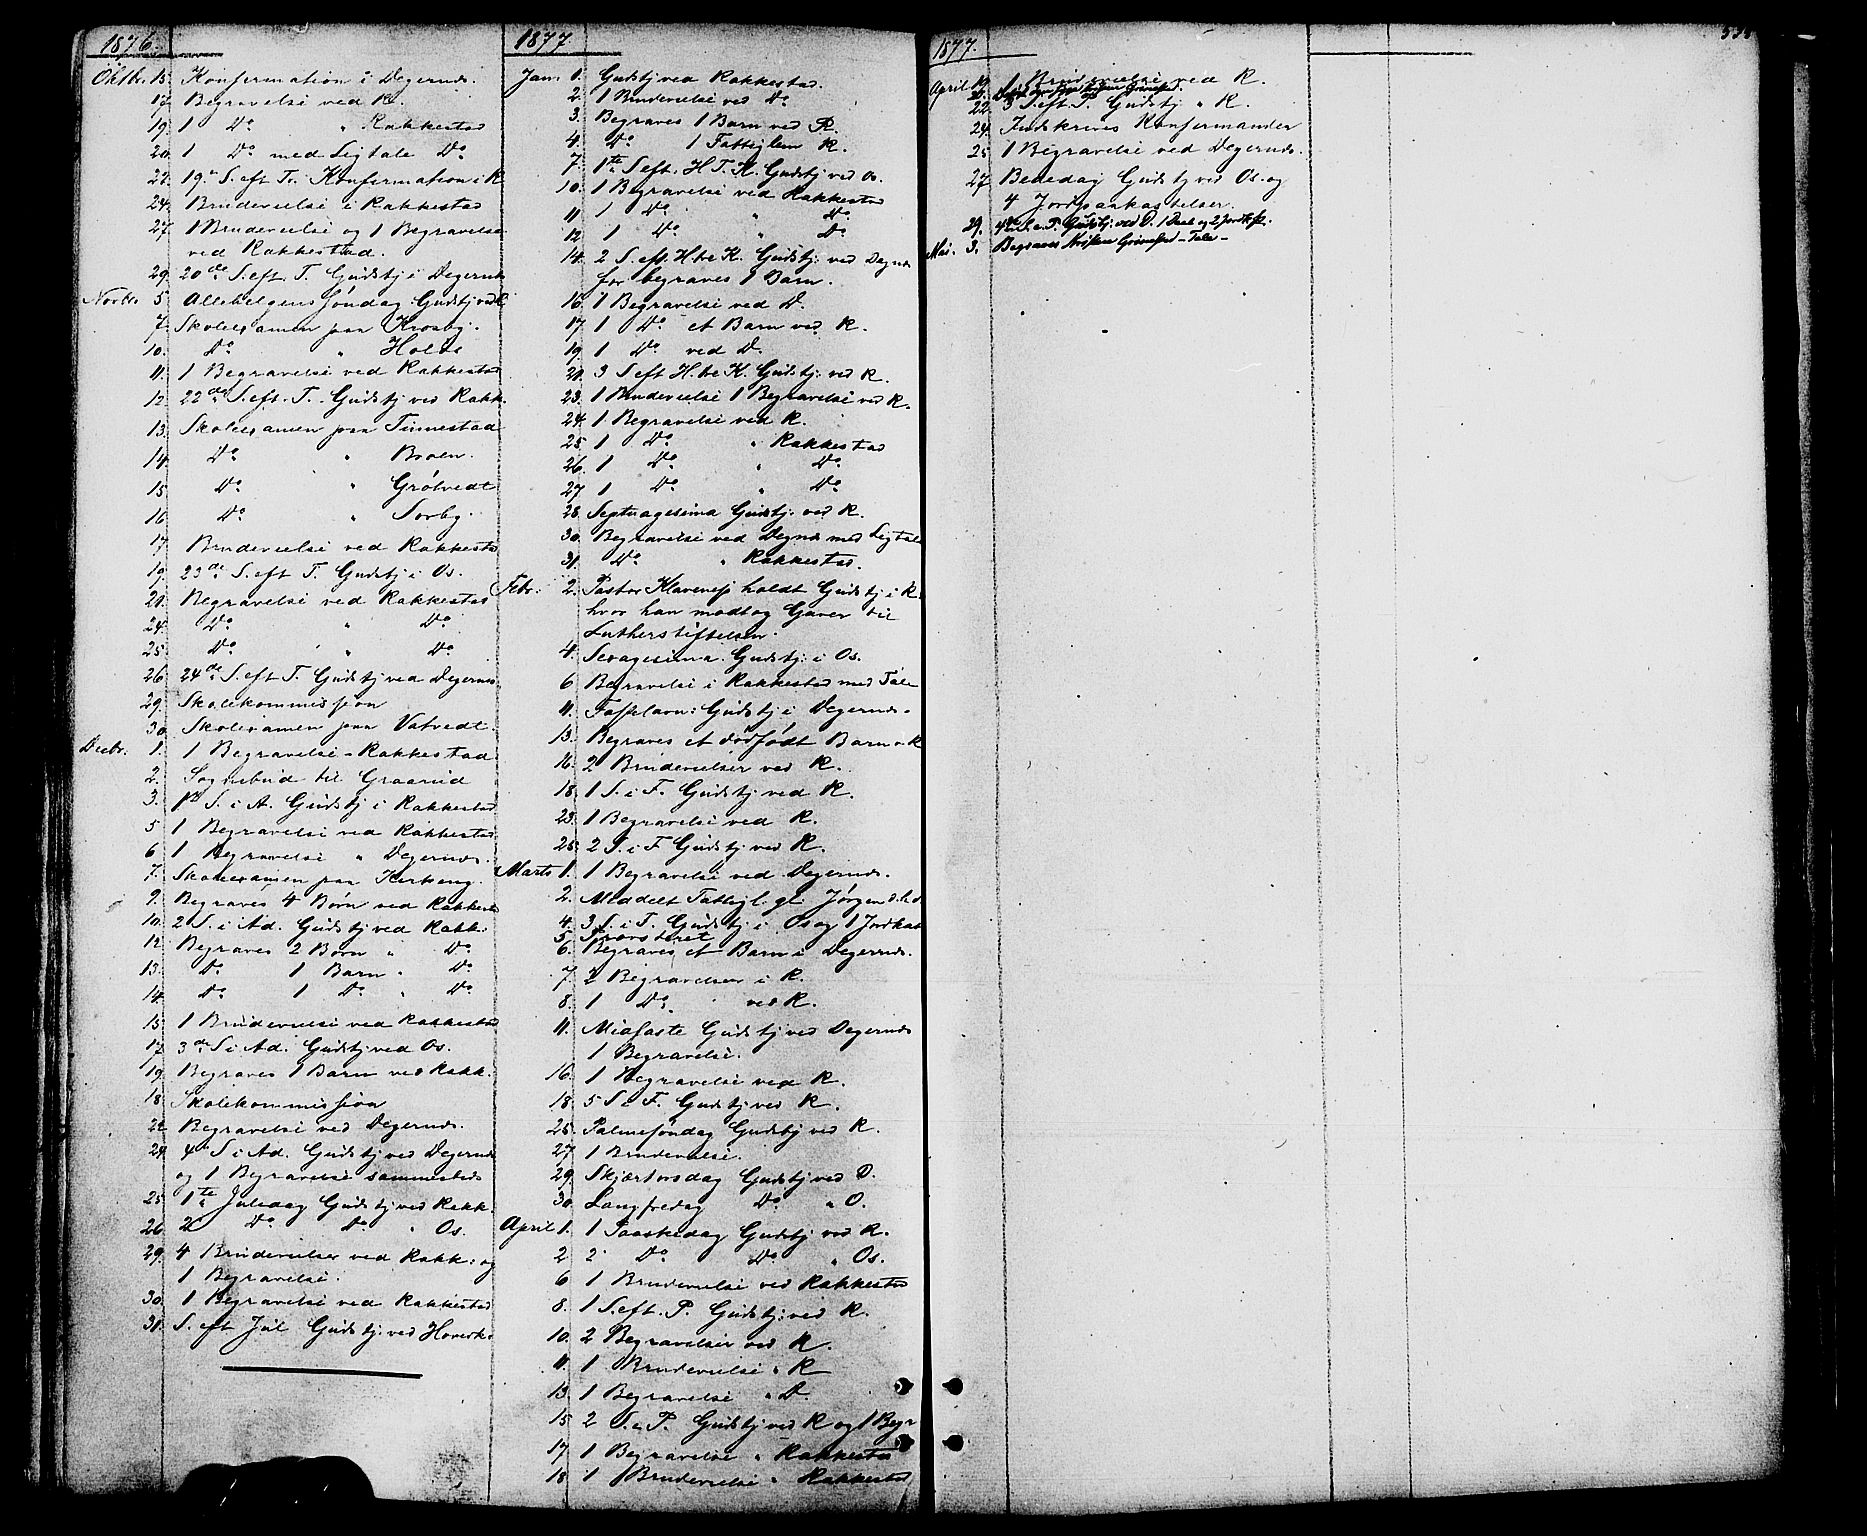 1876.
Oktbr. 15. Konfirmation i Degernæs.
17. Begravelse ved R.
19. 1 Do " Rakkestad
20. 1 Do med Ligtale Do
22. 19de S. eft Tr. Konfirmation i R
24. Brudevielse i Rakkestad
27. 1 Brudevielse og 1 Begravelse
ved Rakkestad.
29. 20de S. eft. T. Gudstj i Degernæs
Novbr. 5. Allehelgens Søndag Gudstj ved
7. Skolexamen paa Krosby.
10. Do " Holde
11. 1 Begravelse ved Rakkestad
12. 22de S. eft. T. Gudstj ved Rakk.
13. Skolexamen paa Tinnestad
14. Do " Broen.
15. Do " Grøtvedt
16. Do " Sørby.
17. Brudevielse ved Rakkestad
19. 23de S. eft T. Gudstj i Os.
20. Begravelse ved Rakkestad
24. Do " Do
25. Do " Do
26. 24de S. eft T. Gudstj ved Degernæs.
29. Skolekommission
30. Skolexamen paa Vatvedt.
Decbr. 1. 1 Begravelse - Rakkestad
2. Sognebud til Graarud
3. 1ste S. i A. Gudstj i Rakkestad
5. 1 Begravelse ved Rakkestad
6. 1 Begravelse " Degernæs.
7. Skolexamen paa Kirkeng.
9. Begraves 4 Børn ved Rakkest
10. 2 S. i Ad. Gudstj ved Rakk.
12. Begraves 2 Børn " Do
13. Do 1 Barn " Do
14. Do 1 Do " Do
15. 1 Brudevielse ved Rakkestad
17. 3de S i Ad. Gudstj ved Os.
19. Begraves 1 Barn ved Rakk.
18. Skolekommission
22. Begravelse ved Degernæs.
24. 4de S i Ad. Gudstj ved Degernæs
og 1 Begravelse sammesteds
25. 1te Juledag Gudstj ved Rakk.
26. 2 Do Do " Os.
29. 4 Brudevielser ved Rakk: og
1 Begravelse.
30. 1 Begravelse ved Rakkestad
31. S. eft Jul Gudstj: ved Hovedk.
1877
Jan: 1. Gudstj ved Rakkestad.
2. 1 Brudevielse ved Do
3. Begraves 1 Barn ved R.
4. Do 1 Fattiglem R.
7. 1te S. eft. H. T. K. Gudstj ved Os.
10. 1 Begravelse ved Rakkestad
11. 1 Do " Do
12. 1 Do " Do
14. 2 S. eft. H. tre K. Gudstj: ved Degnæs
før begraves 1 Barn.
16. 1 Begravelse ved D.
17. 1 Do et Barn ved R.
19. 1 Do ved D.
21. 3 S eft H. tre K. Gudstj: ved R.
23. 1 Brudevielse 1 Begravelse ved R.
24. 1 Begravelse ved R.
25. 1 Do " Rakkestad
26. 1 Do " Do
27. 1 Do " Do
28. Septuagesima Gudstj: ved R.
30. Begravelse ved Degnæs med Ligtale
31. Do " Rakkestad.
Febr: 2. Pastor Klaveness holdt Gudstj i R.
hvor han modtog Gaver til
Lutherstiftelsen.
4. Sexagesima. Gudstj: i Os.
6. Begravelse i Rakkestad med Tale
11. Fastelavn: Gudstj i Degernæs.
13. Begraves et dødfødt Barn v. R
16. 2 Brudevielser ved R.
18. 1 S. i F. Gudstj ved R.
23. 1 Begravelse ved R.
25. 2 S. i F Gudstj ved R.
Marts 1. 1 Begravelse ved Degernæs.
2. Meddelt Fattigl. gl. Jørgen d. h. S.
4. 3 S. i F. Gudstj i Os og 1 Jordkast
5. Provsteret
6. Begraves et Barn i Degernæs.
7. 2 Begravelser i R.
8. 1 Do ved R.
11. Midfaste Gudstj ved Degernæs
1 Begravelse.
16. 1 Begravelse ved R.
18. 5 S i F. Gudstj ved R.
25. Palmesøndag Gudstj ved R.
27. 1 Brudevielse.
29. Skjærtorsdag Gudstj ved D.
30. Langfredag Do " O.
April 1. 1 Paaskedag Gudstj ved R.
2. 2 Do Do " Os.
6. 1 Brudevielse ved Rakkestad
8. 1 S. eft. P. Gudstj: ved R.
10. 2 Begravelser ved R.
11. 1 Brudevielse " R
13. 1 Begravelse " D.
15. 2 S. e P. Gudstj ved R og 1 Begr
17. 1 Begravelse " Rakkestad
18. 1 Brudevielse " Rakkestad
1877.
April 19. 1 Brudevielse ved R.
22. 3 S. eft. P. Gudstj " R.
24. Indskreves Konfirmander
25. 1 Begravelse ved Degernæs.
27. Bededag Gudstj ved Os. og
4 Jordpaakastelser.
29. 4de S. e. P. Gudstj: ved D. 1 Daab og 2 Jordkst.
Mai. 3. Begraves Grimsrud - Tale -